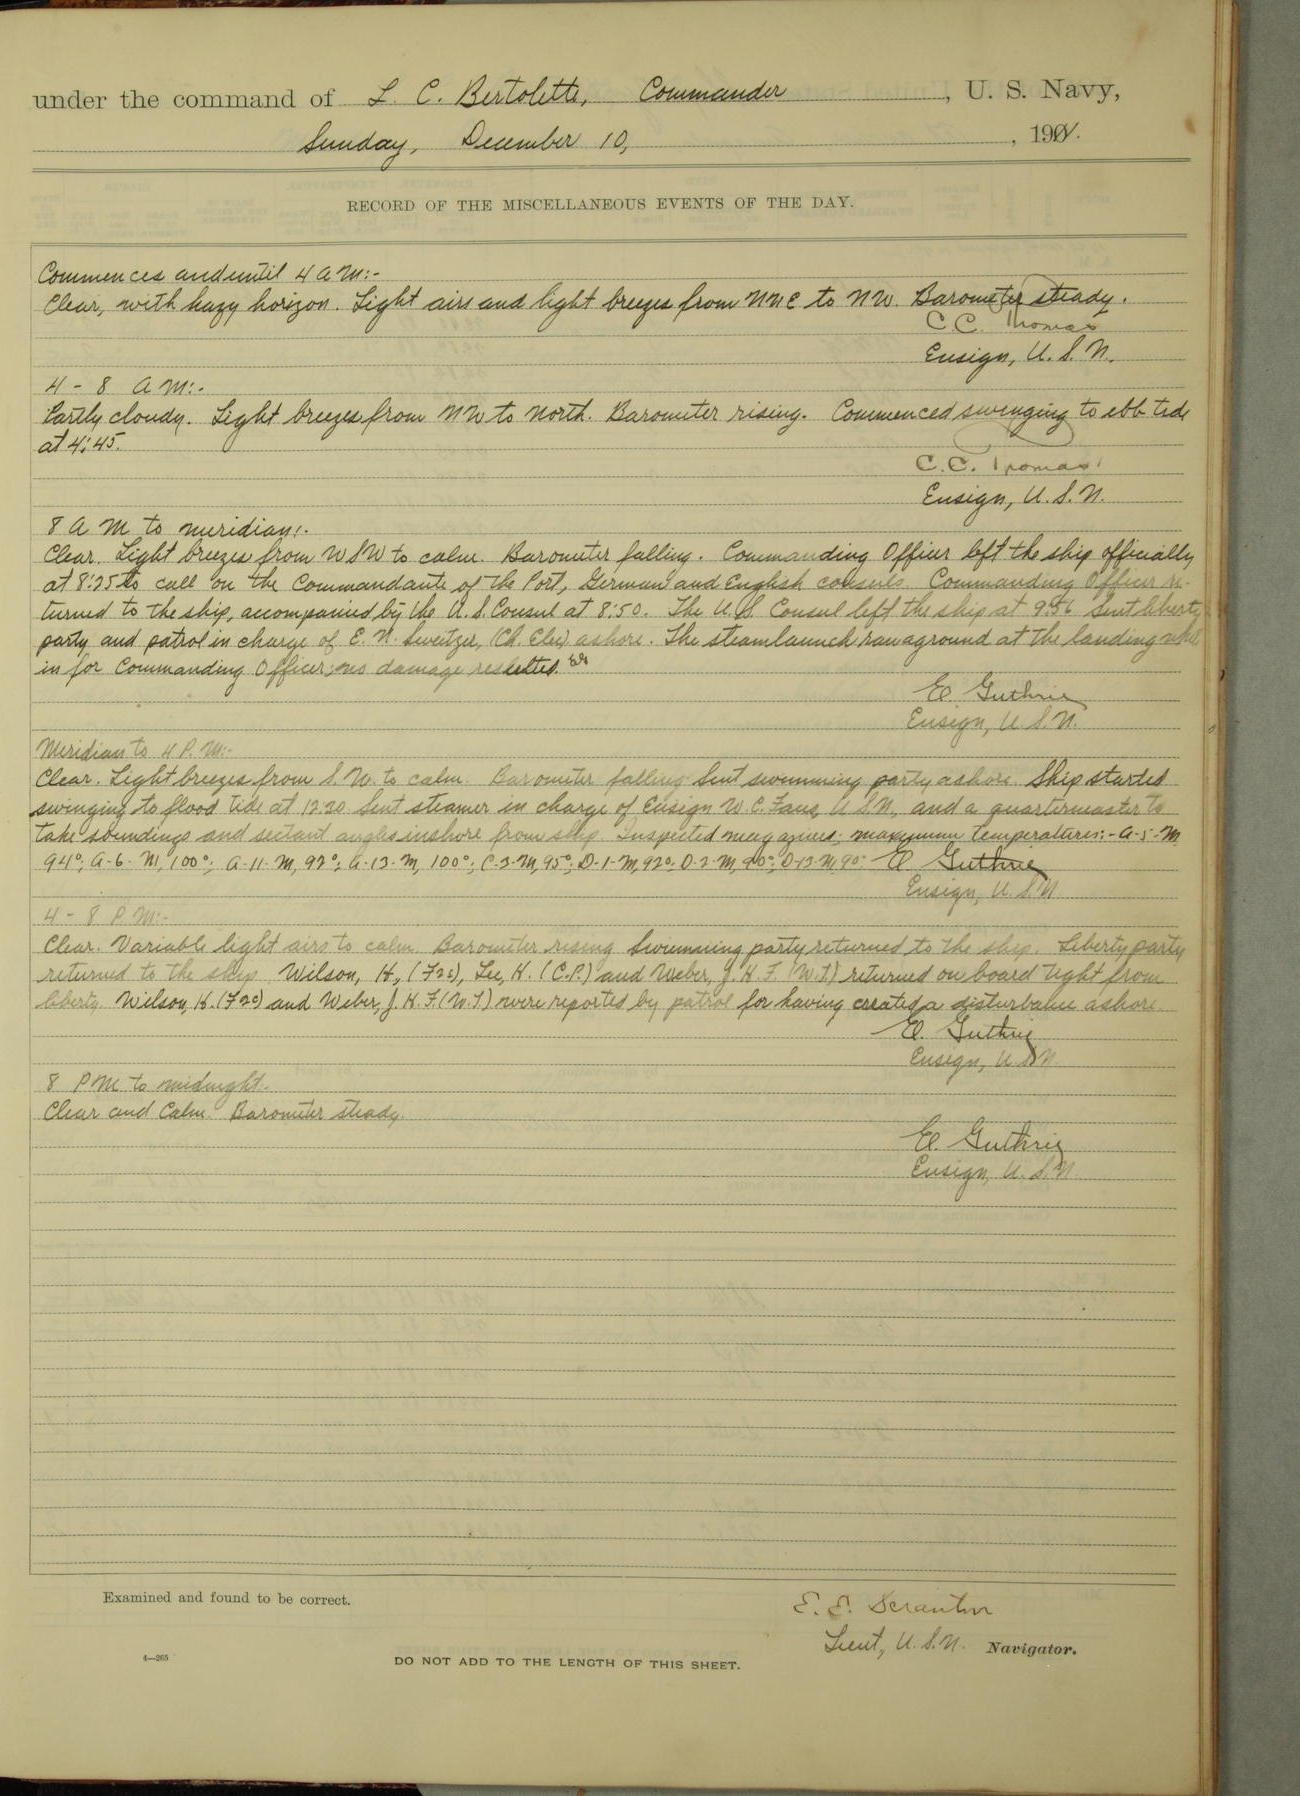 under the command of L. C. Bertolette, Commander, U. S. Navy,
Sunday, December 10, 1901.
RECORD OF THE MISCELLANEOUS EVENTS OF THE DAY.
Commences and until 4 A M:-
Clear, with hazy horizon. Light airs and light breezes from NNE to NW. Barometer steady.
C. C. Thomas
Ensign, U. S. N.
4 - 8 A M:-
Partly cloudy. Light breezes from NW to North. Barometer rising. Commenced swinging to ebb tide
at 4:45.
C. C. Thomas
Ensign, U. S. N.
8 A M to meridian:-
Clear. Light breezes from WSW to calm. Barometer falling. Commanding Officer left the ship officially
at 8:25 to call on the Commandante of the Port, German and English consuls. Commanding Officer re-
turned to the ship, accompanied by the U. S. Consul at 8:50. The U. S. Consul left the ship at 9:56 Sent liberty
party and patrol in charge of E. N. Sweitzer, (Ch. Elec) ashore. The steam launch ran aground at the landing
in for Commanding Officer; no damage resulted. EG
E. Guthrie
Ensign, U. S. N.
Meridian to 4 P. M:-
Clear. Light breezes from S. W. to calm. Barometer falling Sent swimming party ashore. Ship started
swinging to flood tide at 12.20. Sent steamer in charge of Ensign W. C. U. S. N., and a quartermaster to
take soundings and sextant angles inshore from ship. Inspected magazines; maximum temperatures:- A-5-M
94°; A-6-M, 100°; A-11-M, 92°; A-13-M, 100°; C-3-M, 95°; D-1-M, 92°; D-2-M, 90°; D-13-M 90° E. Guthrie
Ensign, U. S. N
4 - 8 P. M:-
Clear. Variable light airs to calm. Barometer rising Swimming party returned to the ship. Liberty party
returned to the ship. Wilson, H., (F2c), Lee, H. (C.P.) and Weber, J. H. F. (W.T.) returned on board tight from
liberty. Wilson, H. (F2c) and Weber, J. H. F. (W.T.) were reported by patrol for having created a disturbance ashore.
E. Guthrie
Ensign, U. S. N.
8 P M to midnight.
Clear and Calm. Barometer steady.
E. Guthrie
Ensign, U. S. N
Examined and found to be correct.
E. E. Scranton
Lieut, U. S. N. Navigator.
4—265
DO NOT ADD TO THE LENGTH OF THIS SHEET.